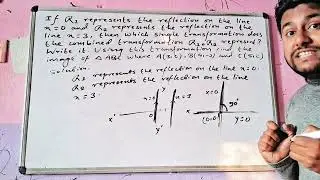 If R1 represents the reflection on the line
x=0 and R2 represents the reflection on the
line x=3, then which single transformation does
the combined transformation R1 o R2 represent?
Write it. Using this transformation find the
image of △ABC where
Solution
R1 represents the reflection on the line x=0.
R2 represents the reflection on the line
x=3.
y
x=0
x=3
x'
y'
x=0
90°
y=0